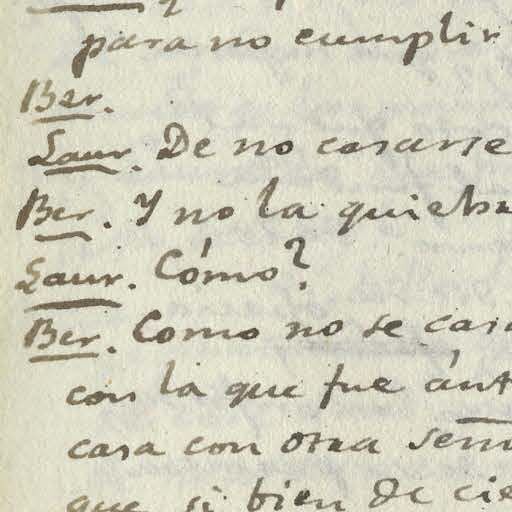 para no cumplir
Ber.
Laur. De no casarse
Ber. Y no la quieba
Laur. Cómo?
Ber. Como no se casa
con la que fue ánt
casa con otra sem
que si bien de cie